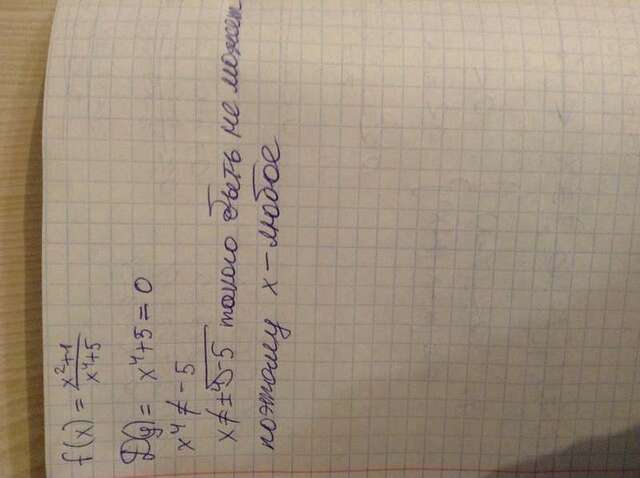 f(x) = x²+1/x⁴+5
D(y) = x⁴+5=0
x⁴ ≠ -5
x ≠ ±⁴√-5 такого быть не может
поэтому x - любое